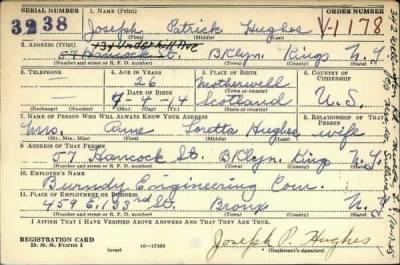 SERIAL NUMBER
1. NAME (Print)
ORDER NUMBER
3238
Joseph Patrick Hughes
V-1178
(First) (Middle) (Last)
2. ADDRESS (Print)
57 Hancock St. BKlyn. Kings N.Y.
(Number and street) (Town) (County) (State)
3. TELEPHONE
4. AGE IN YEARS
5. PLACE OF BIRTH
6. COUNTRY OF CITIZENSHIP
26
Motherwell
DATE OF BIRTH
(Town or county)
7-4-14
Scotland
U.S.
(Exchange) (Number)
(Mo.) (Day) (Yr.)
(State or country)
7. NAME OF PERSON WHO WILL ALWAYS KNOW YOUR ADDRESS
8. RELATIONSHIP OF THAT PERSON
Mrs. Anne Loretta Hughes wife
(Mr., Mrs., Miss) (First) (Middle) (Last)
9. ADDRESS OF THAT PERSON
57 Hancock St. BKlyn. King N.Y.
(Number and street) (Town) (County) (State)
10. EMPLOYER'S NAME
Burndy Engineering Com.
11. PLACE OF EMPLOYMENT OR BUSINESS
459 E. 133rd St. Bronx N.Y.
(Number and street) (Town) (County) (State)
I AFFIRM THAT I HAVE VERIFIED ABOVE ANSWERS AND THAT THEY ARE TRUE.
REGISTRATION CARD
D. S. S. Form 1
(over)
16-17105
Joseph P. Hughes
(Registrant's signature)